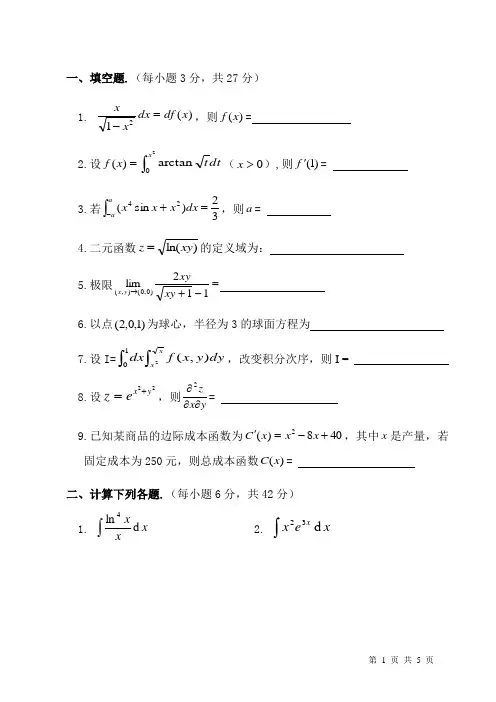 一、填空题.(每小题3分，共27分)
1. $\frac{x}{\sqrt{1-x^2}}dx = df(x)$，则$f(x)$=
2.设$f(x)=\int_0^{x^2}\arctan\sqrt{t}dt$（$x>0$）,则$f'(1)$=
3.若$\int_{-a}^{a}(x^4\sin x+x^2)dx=\frac{2}{3}$，则$a$=
4.二元函数$z=\sqrt{\ln(xy)}$的定义域为：
5.极限$\lim_{(x,y)\to(0,0)}\frac{2xy}{\sqrt{xy+1}-1}=$
6.以点$(2,0,1)$为球心，半径为3的球面方程为
7.设I=$\int_0^1dx\int_{x^2}^{\sqrt{x}}f(x,y)dy$，改变积分次序，则I=
8.设$z=e^{x^2+y^2}$，则$\frac{\partial^2z}{\partial x\partial y}$=
9.已知某商品的边际成本函数为$C'(x)=x^2-8x+40$，其中$x$是产量，若
固定成本为250元，则总成本函数$C(x)$=
二、计算下列各题.(每小题6分，共42分)
1. $\int\frac{\ln^4x}{x}dx$ 2. $\int x^2e^{3x}dx$
第 1 页 共 5 页